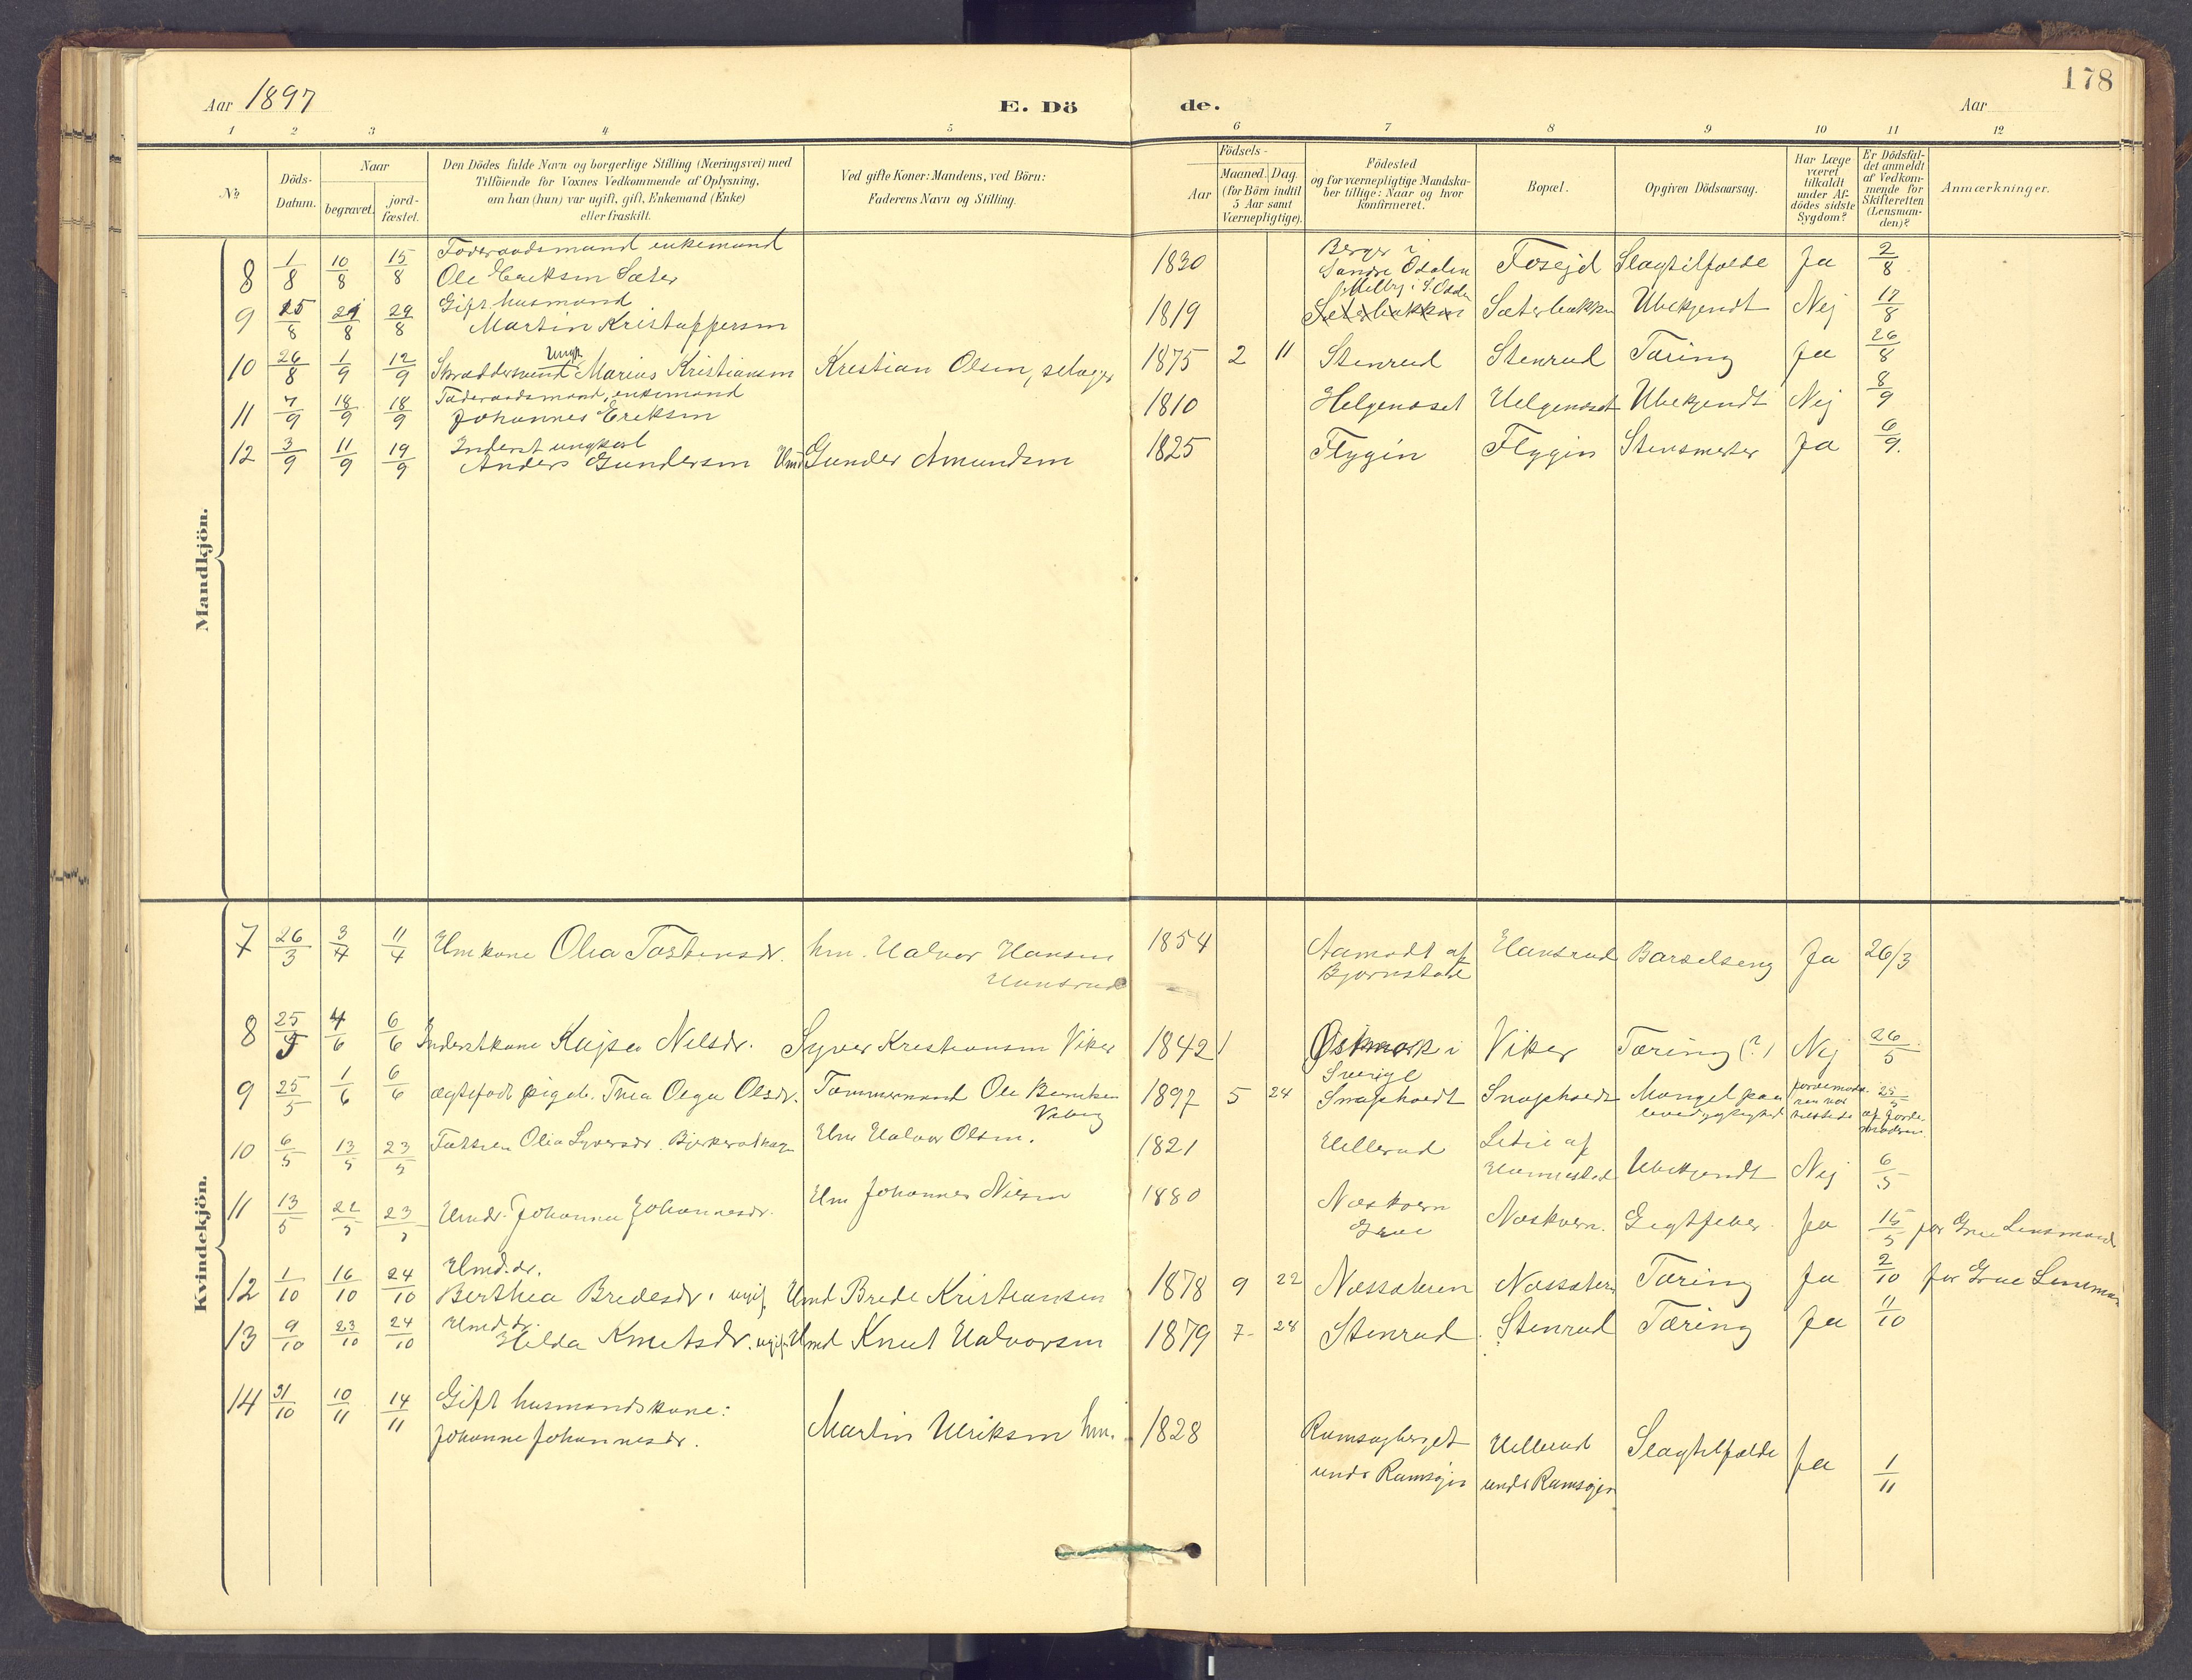 178
Aar 1897 E. Dö de. Aar
1 2 3 4 5 6 7 8 9 10 11 12
№
Döds-
Datum.
Naar
begravet.
jord-
fæstet.
Den Dödes fulde Navn og borgerlige Stilling (Næringsvei) med
Tilföiende for Voxnes Vedkommende af Oplysning,
om han (hun) var ugift, gift, Enkemand (Enke)
eller fraskilt.
Ved gifte Koner: Mandens, ved Börn:
Faderens Navn og Stilling.
Födsels-
Aar
Maaned. Dag.
(for Börn indtil
5 Aar samt
Værnepligtige).
Födested
og for værnepligtige Mandska-
ber tillige: Naar og hvor
konfirmeret.
Bopæl.
Opgiven Dödsaarsag.
Har Læge
været
tilkaldt
under Af-
dödes sidste
Sygdom?
Er Dödsfal-
det anmeldt
af Vedkom-
mende for
Skifteretten
(Lensman-
den)?
Anmærkninger.
Mandkjön.
8 1/8 10/8 15/8 Föderaadsmand enkemand
Ole Eriksen Sæter 1830 Berger i
Søndre Odalen Fosejd Slagtilfælde Ja 2/8
9 15/8 21/8 29/8 Gift husmand
Martin Kristoffersen 1819 Melby i S. Odalen
Sæterbakken Sæterbakken Ubekjendt Nej 17/8
10 26/8 1/9 12/9 Skræddersvend Ungk. Marius Kristiansen Kristian Olsen, selveger 1875 2 11 Stenrud Stenrud Tæring Ja 26/8
11 7/9 18/9 18/9 Föderaadsmand, enkemand
Johannes Eriksen 1810 Helgenæset Helgenæset Ubekjendt Nej 8/9
12 3/9 11/9 19/9 Inderst ungkarl
Anders Gundersen Hmd Gunder Amundsen 1825 Flygin Flygin Stensmerter Ja 6/9.
Kvindekjön.
7 26/3 3/4 11/4 Hmkone Olea Tostensdr. hm. Halvor Hansen
Hansrud 1854 Aamodt af
Bjørnstad Hansrud Barselseng Ja 26/3
8 25/5 4/6 6/6 Inderstkone Kajsa Nilsdr. Syver Kristiansen Viker 1842 Østmark i
Sverige Viker Tæring (?) Nej 26/5
9 25/5 1/6 6/6 ægtefødt pigeb. Thea Olga Olsdr. Tømmermand Ole Berntsen
Viberg 1897 5 24 Snaphoedt Snaphoedt Mangel paa
levedygtighed jordemode-
ren var
tilstede 25/5
af Jorde-
moderen
10 6/5 13/5 23/5 Fattiglem Olia Syversdr. Bjerkerudhagen Hm Halvor Olsen. 1821 Hellerud af Ubekjendt Nej 6/5
11 13/5 22/5 23/5 Hmdr. Johanna Johannesdr. Hm Johannes Nilsen 1880 Næskvern
Grue Næskvern. Gigtfeber Ja 15/5 for Grue Lensmand
12 1/10 16/10 24/10 Hmd.dr.
Berthea Bredesdr. ugift Hmd Brede Kristiansen 1878 9 22 Næssæteren Næssæteren Tæring Ja 2/10 for Grue Lensman
13 9/10 23/10 24/10 Hmd.dr.
Hilda Knutsdr. ugift Hmd Knut Halvorsen 1879 7 28 Stenrud Stenrud Tæring Ja 11/10
14 31/10 10/11 14/11 Gift husmandskone:
Johanne Johannesdr. Martin Ulriksen hm. 1828 Ramsøgberget
under Ramsøjen Hellerud
under Ramsøjen Slagtilfælde Ja 1/11